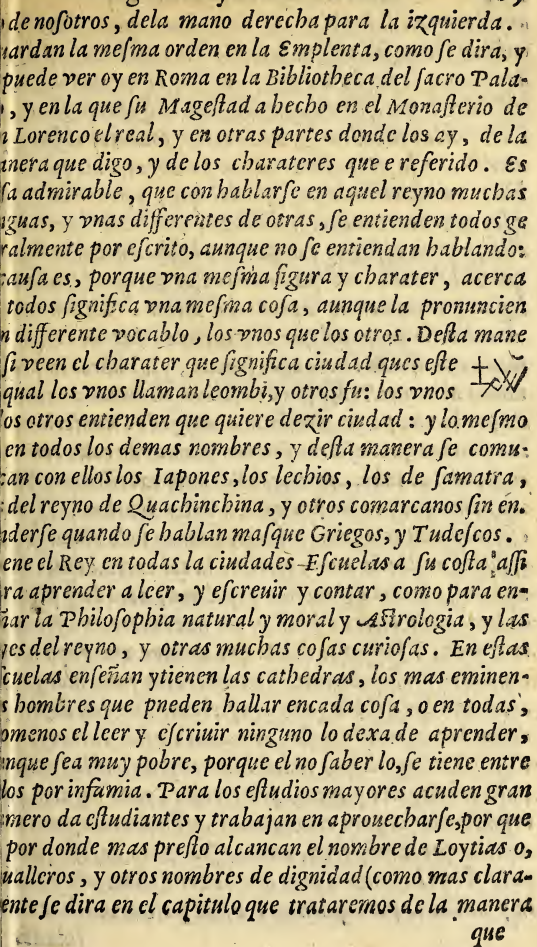 de nosotros, dela mano derecha para la izquierda.
ardan la mesma orden en la Emplenta, como se dira, y
puede ver oy en Roma en la Bibliotheca del sacro Pala-
, y en la que su Magestad a hecho en el Monasterio de
Lorenco el real, y en otras partes donde los ay, de la
nera que digo, y de los charateres que e referido. Es
sa admirable, que con hablarse en aquel reyno muchas
guas, y vnas differentes de otras, se entienden todos ge
ralmente por escrito, aunque no se entiendan hablando:
causa es, porque vna mesma figura y charater, acerca
todos significa vna mesma cosa, aunque la pronuncien
n differente vocablo, los vnos que los otros. Desta mane
si veen el charater que significa ciudad ques este
qual los vnos llaman leombi, y otros fu: los vnos
os otros entienden que quiere dezir ciudad: y lo mesmo
en todos los demas nombres, y desta manera se comu-
can con ellos los Iapones, los lechios, los de samatra,
del reyno de Quachinchina, y otros comarcanos sin en-
derse quando se hablan masque Griegos, y Tudescos.
ene el Rey en todas la ciudades Escuelas a su costa assi
ra aprender a leer, y escreuir y contar, como para en-
ñar la Philosophia natural y moral y Astrologia, y las
yes del reyno, y otras muchas cosas curiosas. En estas
cuelas enseñan y tienen las cathedras, los mas eminen-
s hombres que pneden hallar encada cosa, o en todas,
omenos el leer y escriuir ninguno lo dexa de aprender,
nque sea muy pobre, porque el no saber lo, se tiene entre
los por infamia. Para los estudios mayores acuden gran
mero da estudiantes y trabajan en aprouecharse, por que
por donde mas presto alcancan el nombre de Loytias o,
ualleros, y otros nombres de dignidad (como mas clara-
ente se dira en el capitulo que trataremos de la manera
que